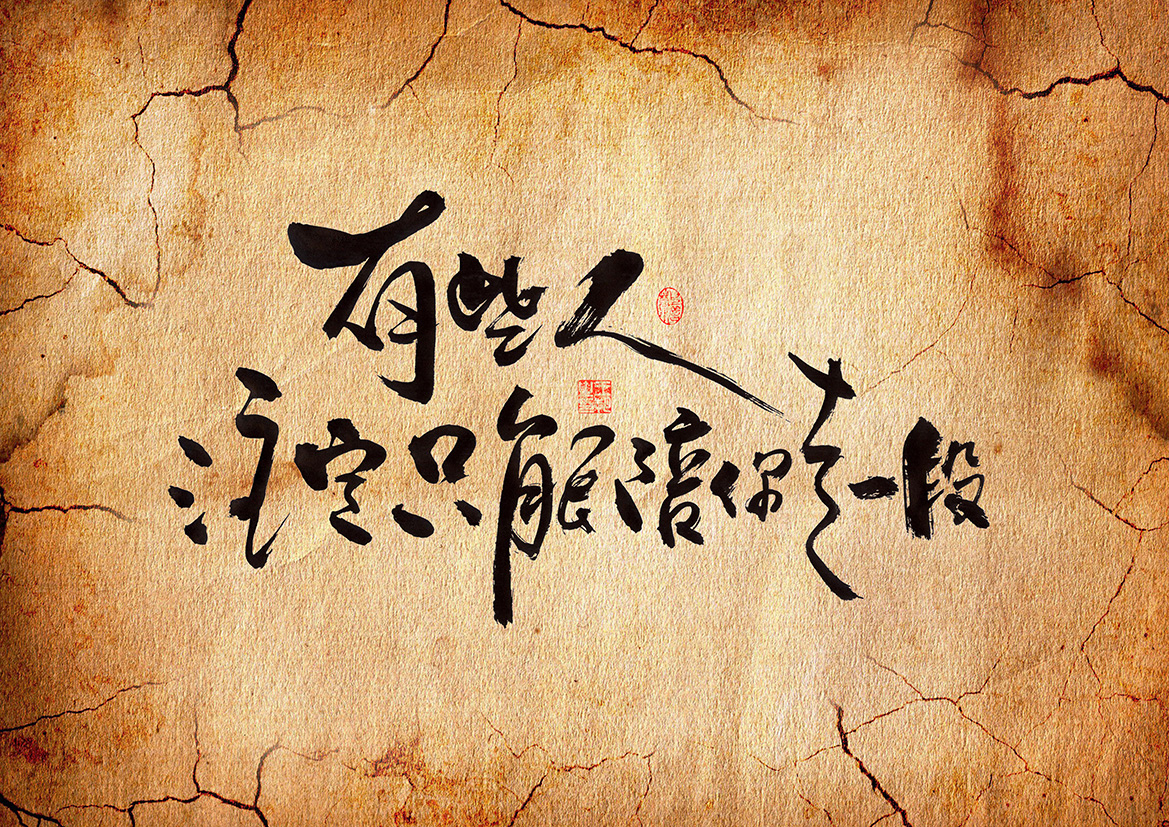 有些人
注定只能陪你走一段